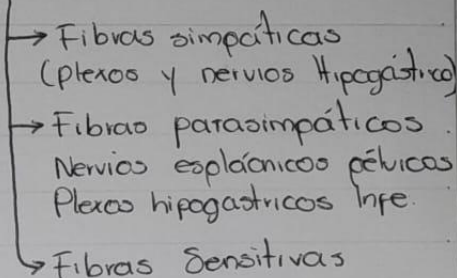 → Fibras simpáticas
(plexos y nervios Hipogástrico)
→ Fibras parasimpáticos.
Nervios esplácnicos pélvicos
Plexos hipogastricos Infe.
→ Fibras Sensitivas